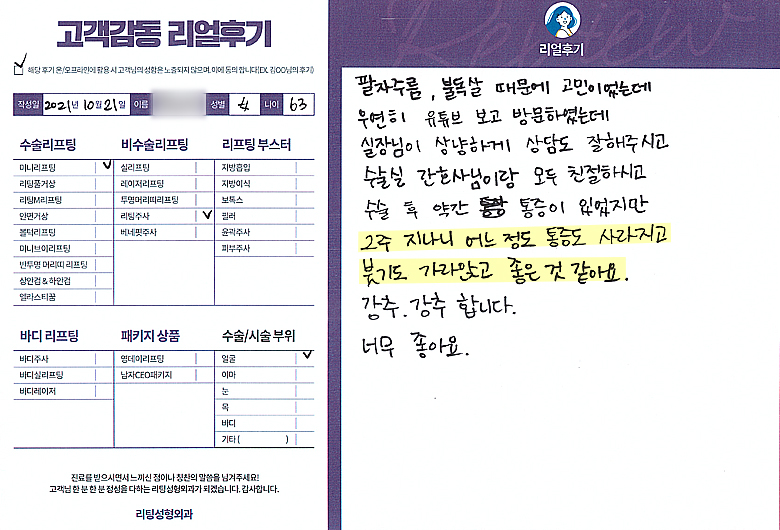 고객감동 리얼후기
해당 후기 온/오프라인에 활용 시 고객님의 성함은 노출되지 않으며, 이에 동의 합니다(EX. 김OO님의 후기)
작성일 2021년 10월 21일 이름 성별 女 나이 63
수술리프팅
미니리프팅
리팅풀거상
리팅M리프팅
안면거상
볼턱리프팅
미니브이리프팅
반투명 머리띠 리프팅
상안검 & 하안검
얼라스티꿈
비수술리프팅
실리프팅
레이저리프팅
투명머리띠리프팅
리팅주사
베네핏주사
리프팅 부스터
지방흡입
지방이식
보톡스
필러
윤곽주사
피부주사
바디 리프팅
바디주사
바디실리프팅
바디레이저
패키지 상품
영데이리프팅
남자CEO패키지
수술/시술 부위
얼굴
이마
눈
목
바디
기타 ( )
진료를 받으시면서 느끼신 점이나 칭찬의 말씀을 남겨주세요!
고객님 한 분 한 분 정성을 다하는 리팅성형외과가 되겠습니다. 감사합니다.
리팅성형외과
Review
리얼후기
팔자주름, 불독살 때문에 고민이었는데
우연히 유튜브 보고 방문하였는데
실장님이 상냥하게 상담도 잘해주시고
수술실 간호사님이랑 모두 친절하시고
수술 후 약간 통증이 있었지만
2주 지나니 어느 정도 통증도 사라지고
붓기도 가라앉고 좋은 것 같아요.
강추. 강추 합니다.
너무 좋아요.